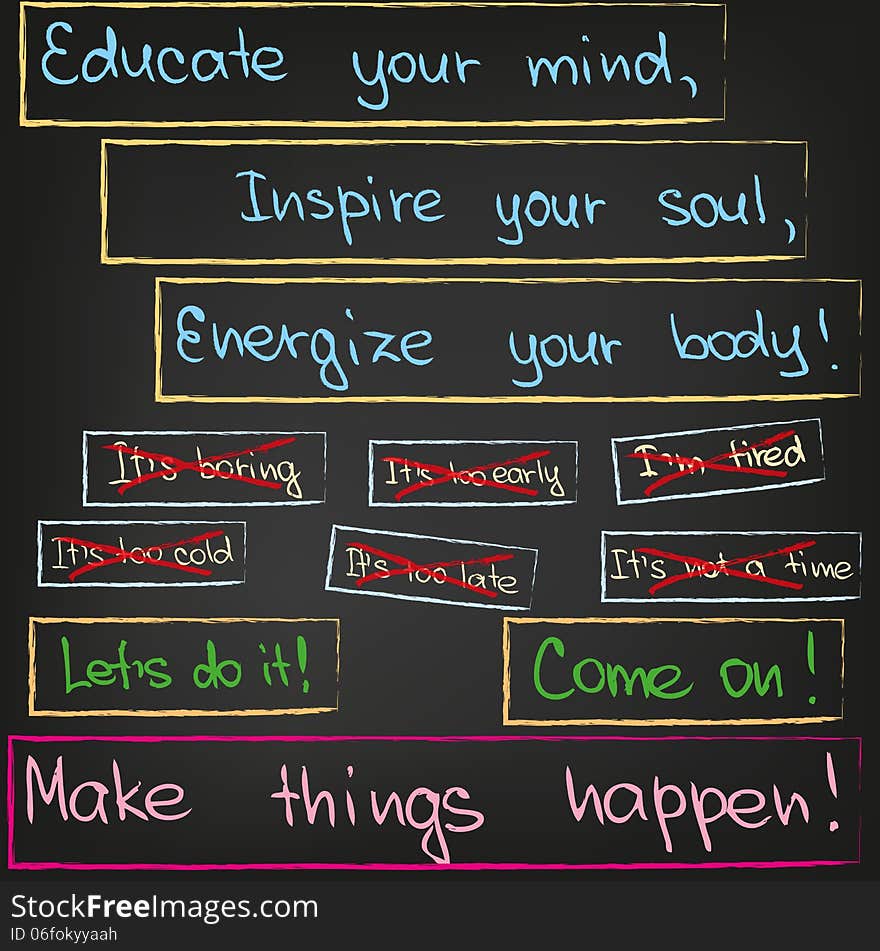 Educate your mind,
Inspire your soul,
Energize your body!
It's boring
It's too early
I'm tired
It's too cold
It's too late
It's not a time
Let's do it!
Come on!
Make things happen!
StockFreeImages.com
ID 06fokyyaah